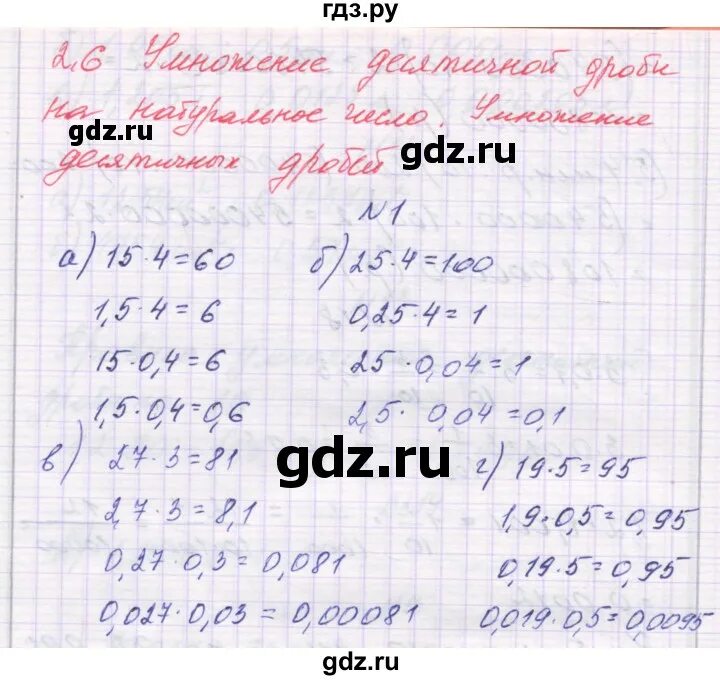 гдз.ру
2.6 Умножение десятичной дроби
на натуральное число. Умножение
gdz.ru gdz.ru
десятичных дробей
№1
а) 15·4=60 б) 25·4=100
1,5·4=6 0,25·4=1
15·0,4=6 25·0,04=1
1,5·0,4=0,6 2,5·0,04=0,1
gdz.ru
в) 27·3=81 г) 19·5=95
2,7·3=8,1 1,9·0,5=0,95
0,27·0,3=0,081 0,19·5=0,95
0,027·0,03=0,00081 0,019·0,5=0,0095
gdz.ru
gdz.ru